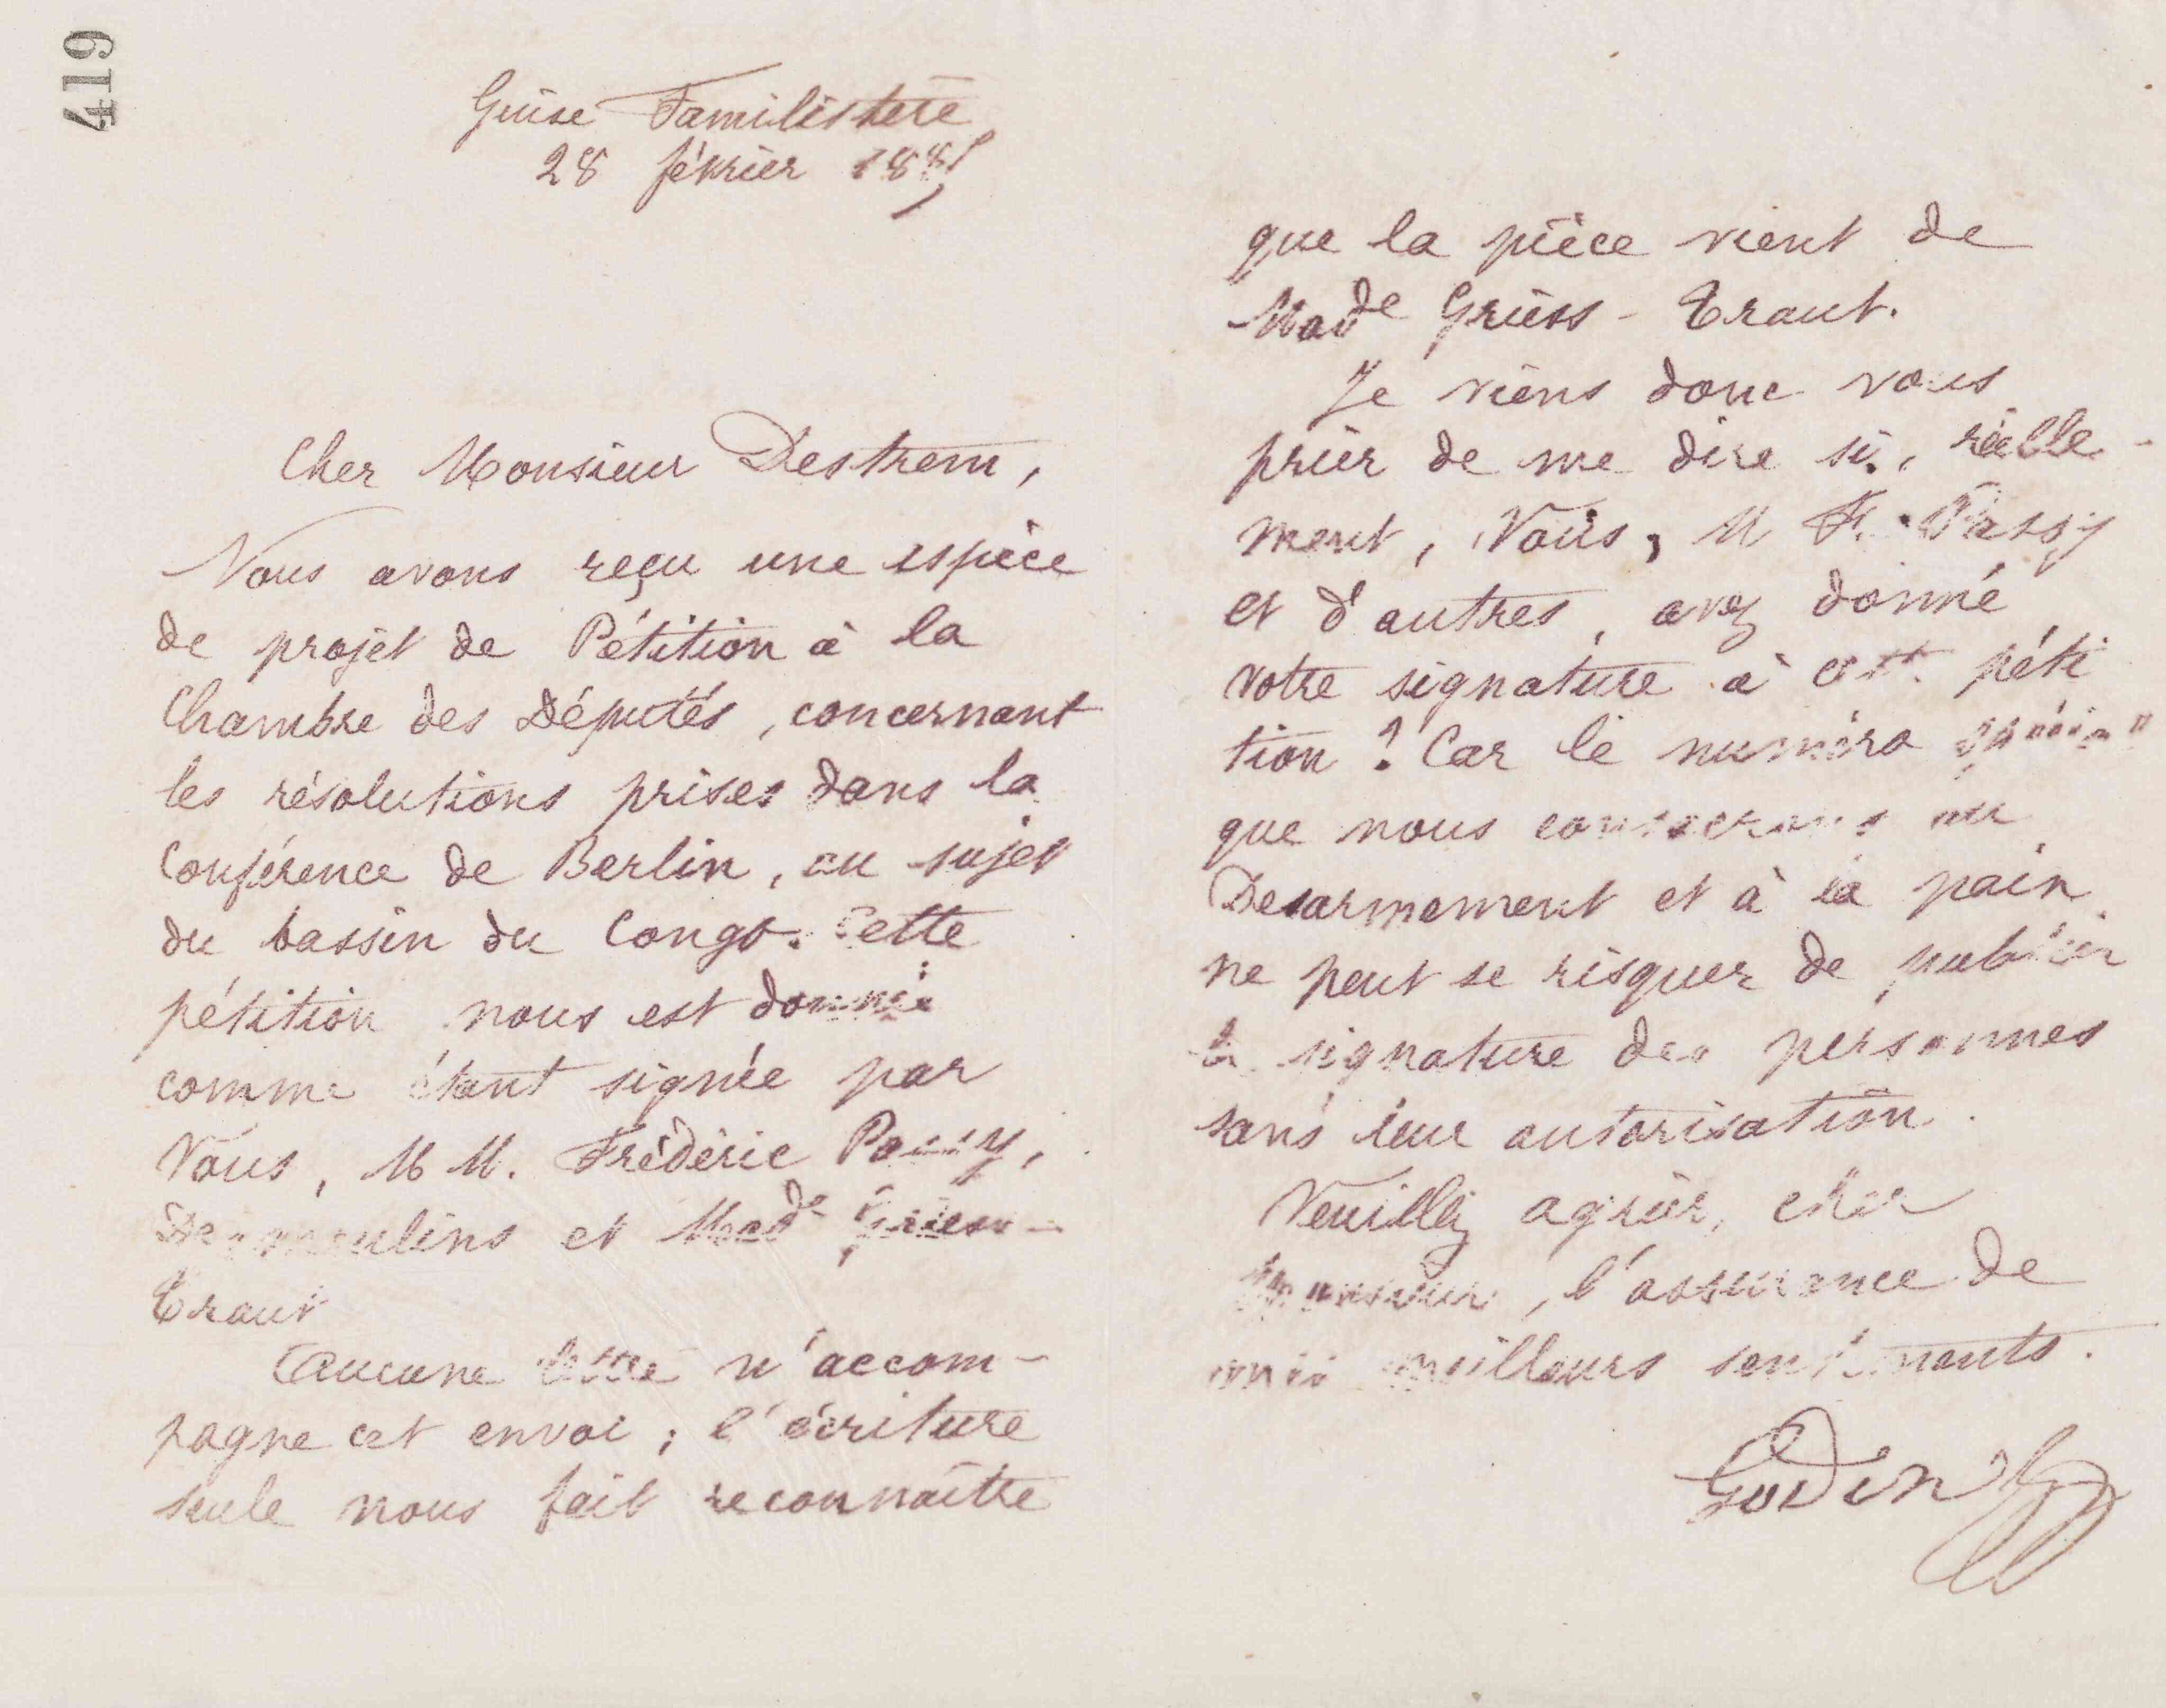 419
Guise Familistère
28 février 1885
Cher Monsieur Destrem,
Nous avons reçu une espèce
de projet de Pétition à la
Chambre des Députés, concernant
les résolutions prises dans la
Conférence de Berlin, au sujet
du bassin du Congo. Cette
pétition nous est donnée
comme étant signée par
Vous, M M. Frédéric Passy,
Desmoulins et Made Griess-
Traut
Aucune lettre n'accom-
pagne cet envoi ; l'écriture
seule nous fait reconnaître
que la pièce vient de
Made Griess-Traut.
Je viens donc vous
prier de me dire si, réelle-
ment, Vous, M F. Passy
et d'autres, avez donné
votre signature à cette péti
tion ? Car le numéro spécial
que nous consacrons au
Désarmement et à la paix
ne peut se risquer de publier
la signature des personnes
sans leur autorisation.
Veuillez agréer, cher
Monsieur, l'assurance de
mes meilleurs sentiments.
Godin